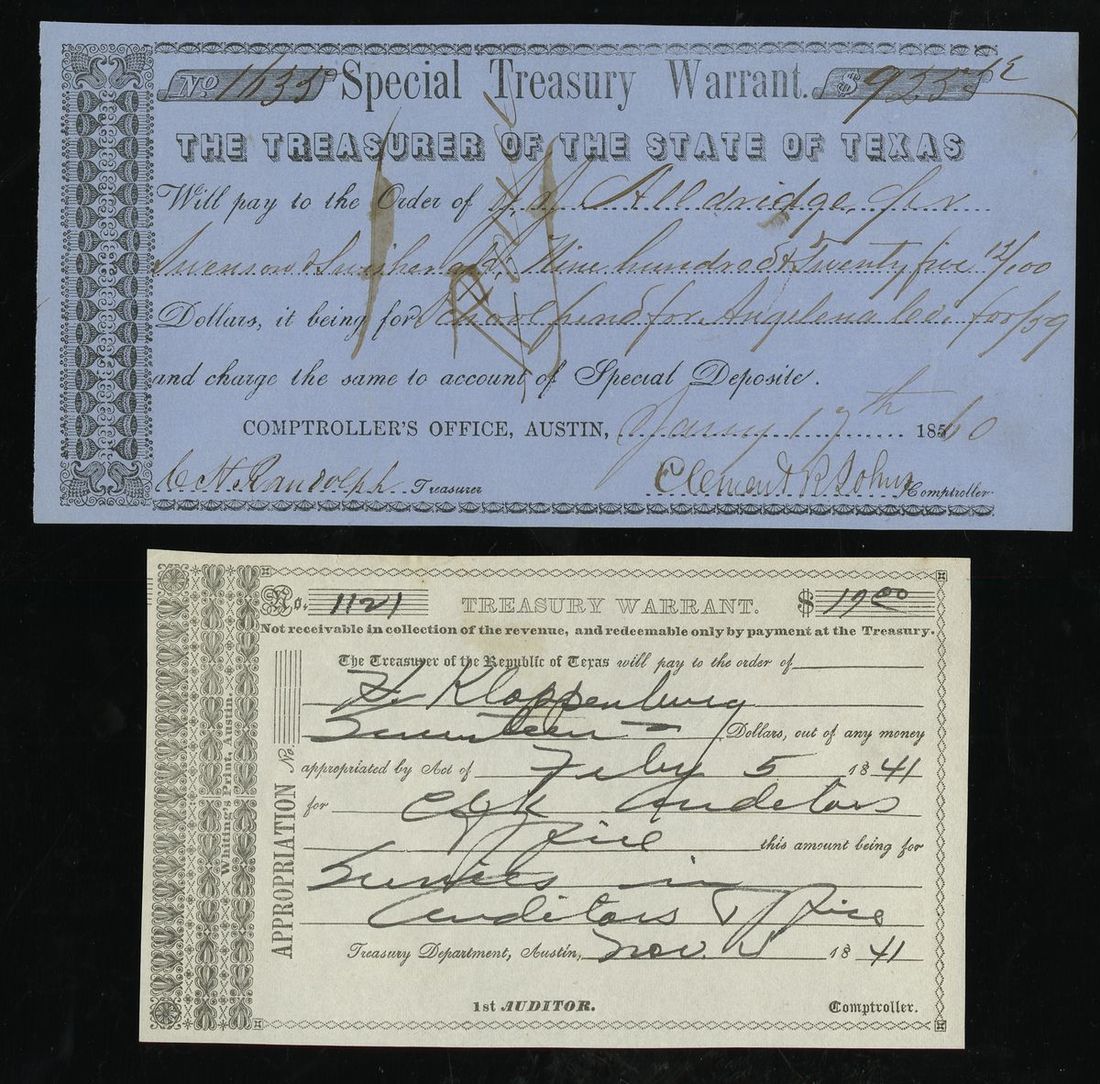 No. 1135 Special Treasury Warrant. $ 925 12
THE TREASURER OF THE STATE OF TEXAS
Will pay to the Order of J. J. Alldridge, for
Swenson & Swisher Nine hundred & Twenty five 12/100
Dollars, it being for School fund for Angelina Co. for /59
and charge the same to account of Special Deposite.
COMPTROLLER'S OFFICE, AUSTIN, Jany 17th 1860
C H Randolph Treasurer
Clement R Johns Comptroller
No. 1121 TREASURY WARRANT. $ 17 00
Not receivable in collection of the revenue, and redeemable only by payment at the Treasury.
The Treasurer of the Republic of Texas will pay to the order of
H. Kloppenburg
Seventeen Dollars, out of any money
appropriated by Act of Feby 5 1841
for Clk Auditors
Office this amount being for
Services in
Auditors Office
Treasury Department, Austin, Nov. 1841
1st AUDITOR. Comptroller.
APPROPRIATION No.
Whiting's Print, Austin.